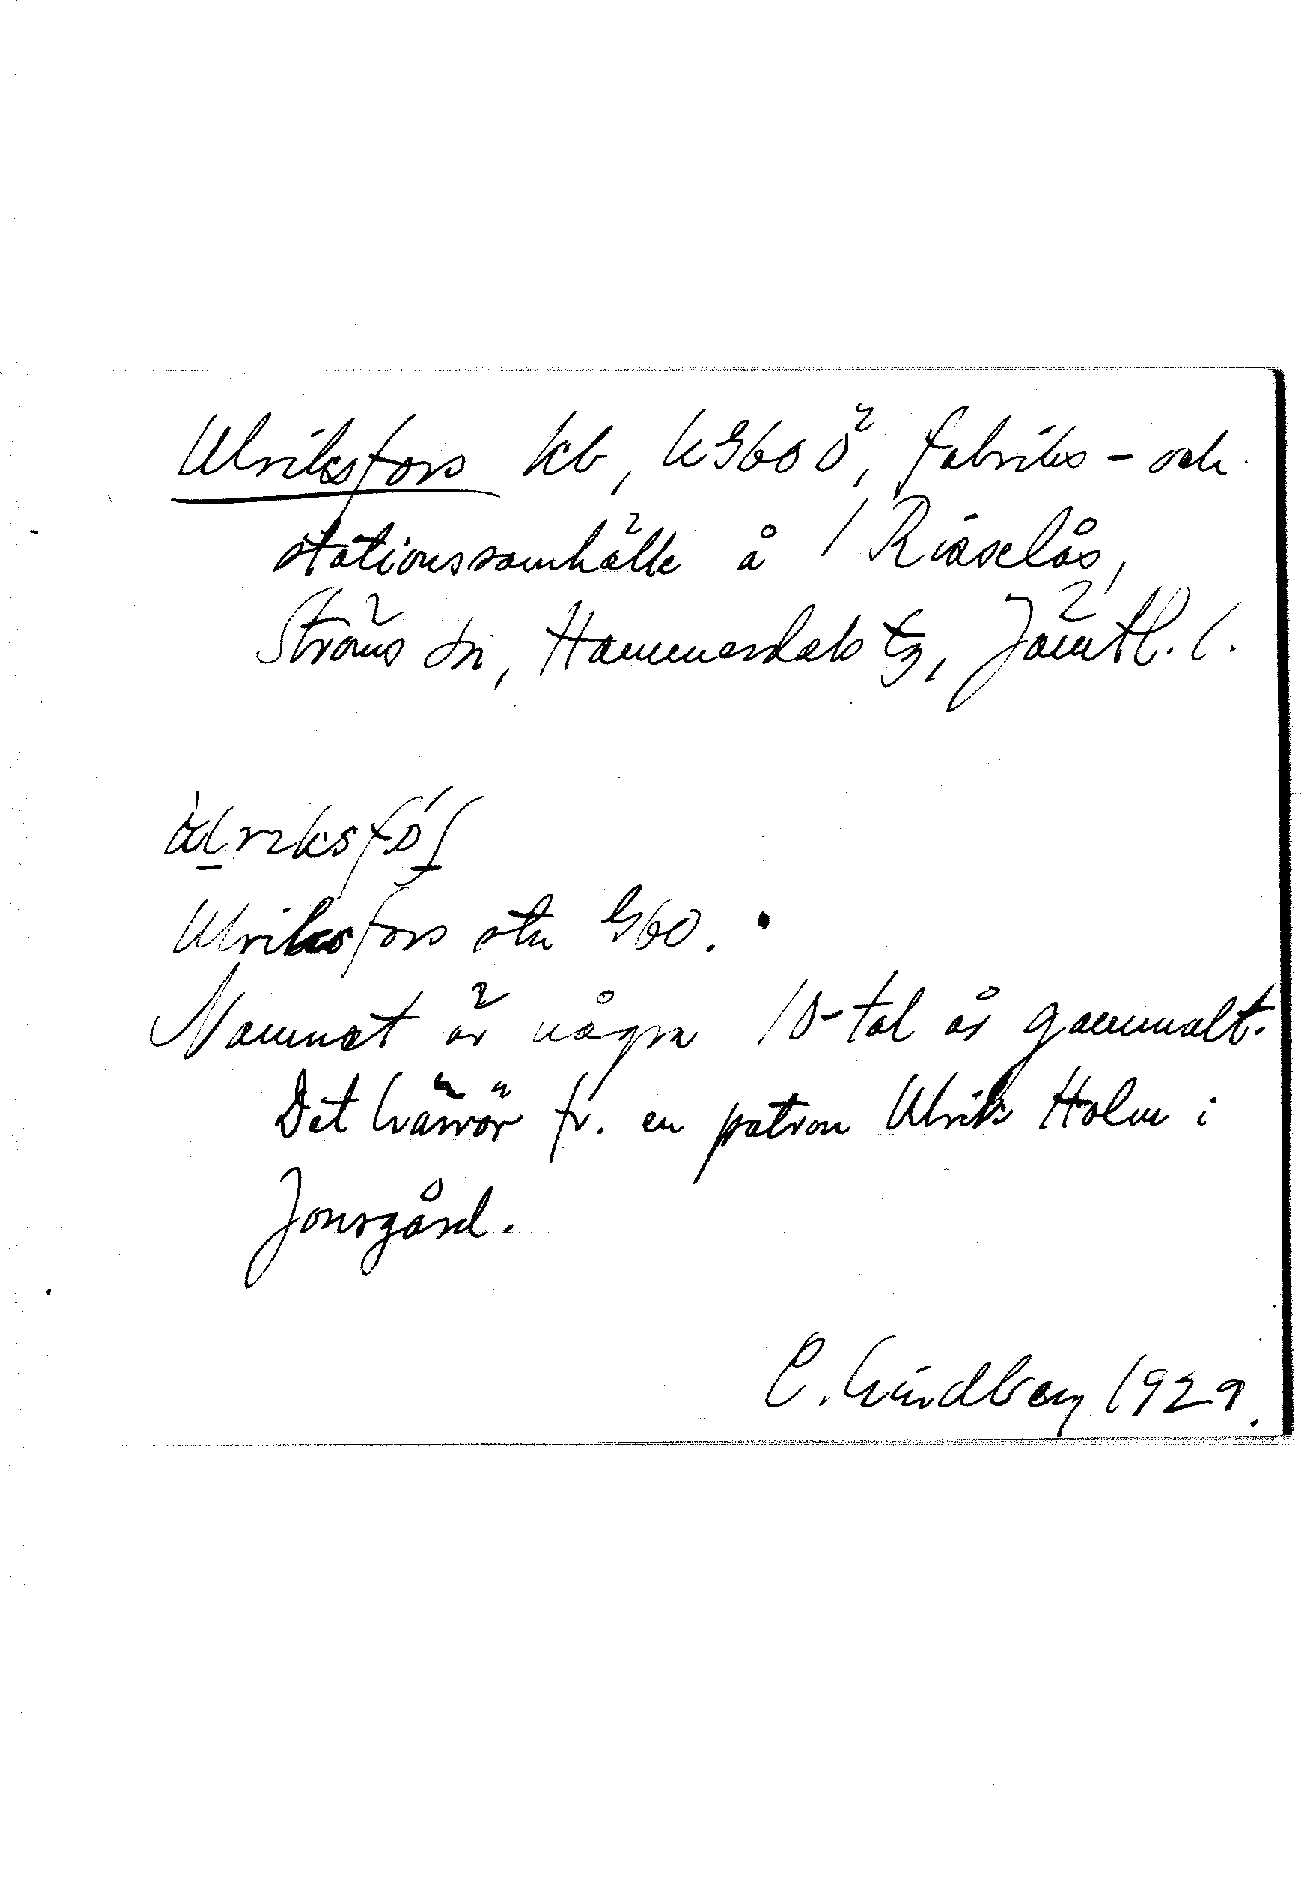 Ulriksfors kb, kG60Ö, fabriks- och
stationssamhälle å 1 Risselås,
Ströms sn, Hammerdals tg, Jämtl. l.
Ulriksfors stn G60.
Namnet är några 10-tal år gammalt.
Det härrör fr. en patron Ulrik Holm i
Jonsgård.
C. Lindberg 1929.